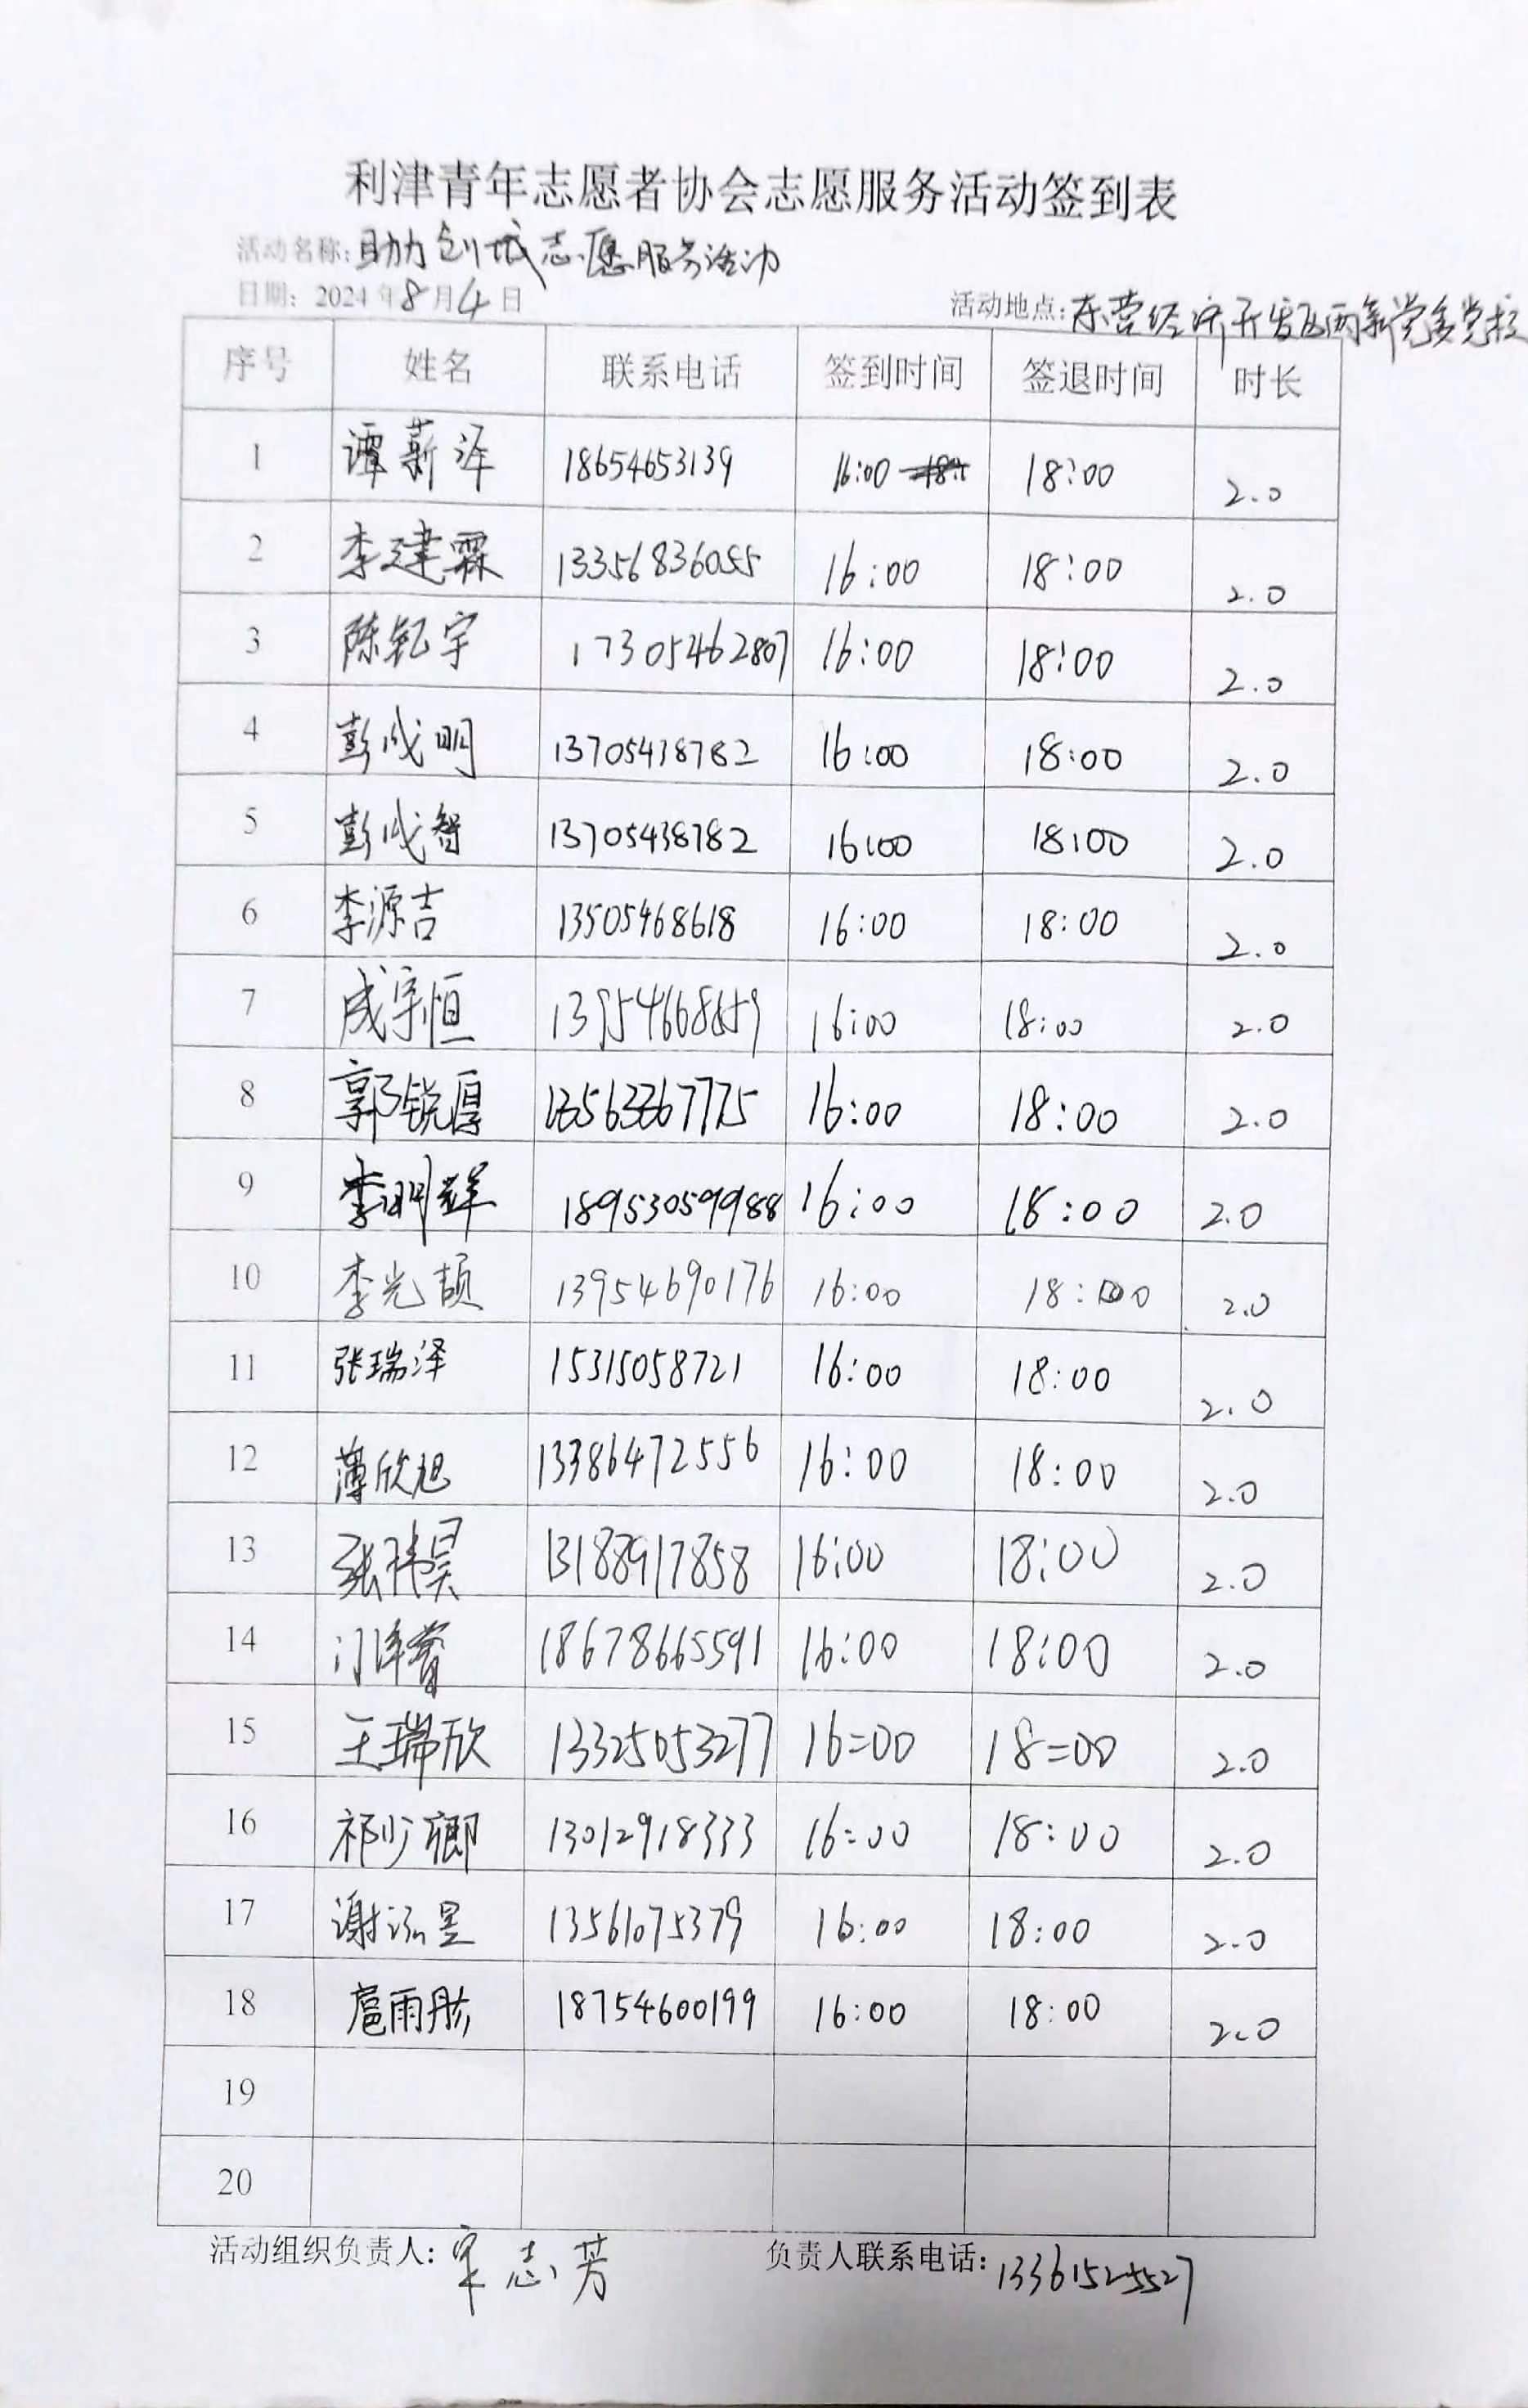 利津青年志愿者协会志愿服务活动签到表
活动名称:助力创城志愿服务活动
日期: 2024年8月4日 活动地点:东营经济开发区两新党务党校
序号 姓名 联系电话 签到时间 签退时间 时长
1 谭薪泽 18654653139 16:00 18:00 2.0
2 李建霖 13356836055 16:00 18:00 2.0
3 陈钇宇 17305462807 16:00 18:00 2.0
4 彭成明 13705438782 16:00 18:00 2.0
5 彭成智 13705438782 16:00 18:00 2.0
6 李源吉 13505468618 16:00 18:00 2.0
7 成宇恒 16:00 18:00 2.0
8 郭锐厚 16:00 18:00 2.0
9 李明辉 18953059988 16:00 18:00 2.0
10 李光颉 13954690176 16:00 18:00 2.0
11 张瑞泽 15315058721 16:00 18:00 2.0
12 薄欣旭 13386472556 16:00 18:00 2.0
13 张祎昊 13188917858 16:00 18:00 2.0
14 18678665591 16:00 18:00 2.0
15 王瑞欣 13325053277 16=00 18=00 2.0
16 祁少卿 13012918333 16:00 18:00 2.0
17 谢泓昱 13561075379 16:00 18:00 2.0
18 扈雨彤 18754600199 16:00 18:00 2.0
19
20
活动组织负责人: 宋志芳 负责人联系电话: 13361525527